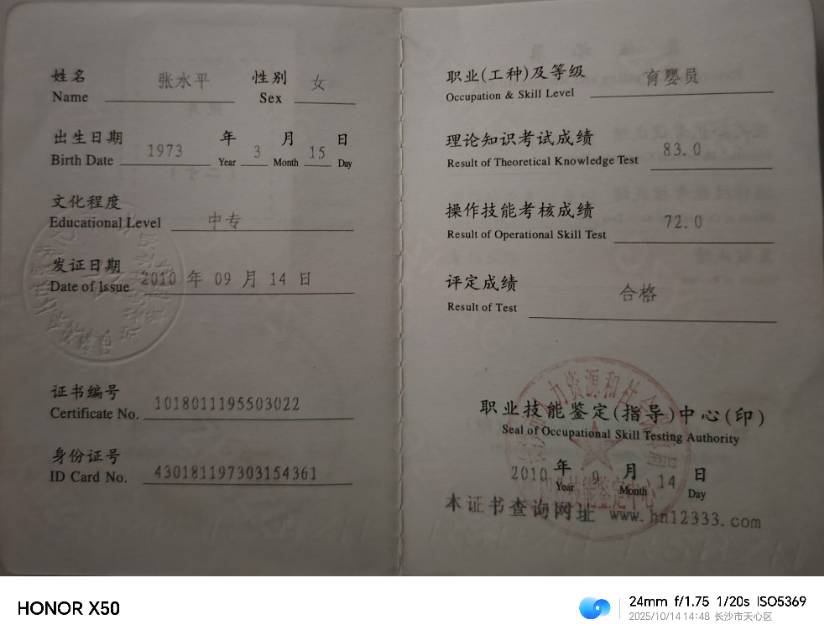 姓名 张水平 性别 女
Name Sex
出生日期 1973 年 3 月 15 日
Birth Date Year Month Day
文化程度
Educational Level 中专
发证日期
Date of Issue 2010 年 09 月 14 日
证书编号
Certificate No. 1018011195503022
身份证号
ID Card No. 430181197303154361
职业(工种)及等级 育婴员
Occupation & Skill Level
理论知识考试成绩 83.0
Result of Theoretical Knowledge Test
操作技能考核成绩 72.0
Result of Operational Skill Test
评定成绩 合格
Result of Test
职业技能鉴定(指导)中心(印)
Seal of Occupational Skill Testing Authority
2010 年 9 月 14 日
Year Month Day
本证书查询网址 www.hn12333.com
HONOR X50
24mm f/1.75 1/20s ISO5369
2025/10/14 14:48 长沙市天心区